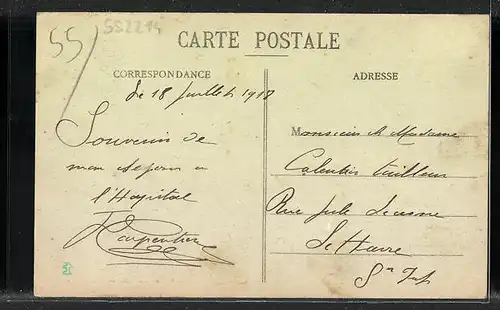 55/
552214
CARTE POSTALE
CORRESPONDANCE
ADRESSE
Le 18 Juillet 1918
Souvenir de
mon séjour a
l'Hopital
Carpentier
Monsieur et Madame
tailleur
Rue Jule
Le Havre
Sne Infre